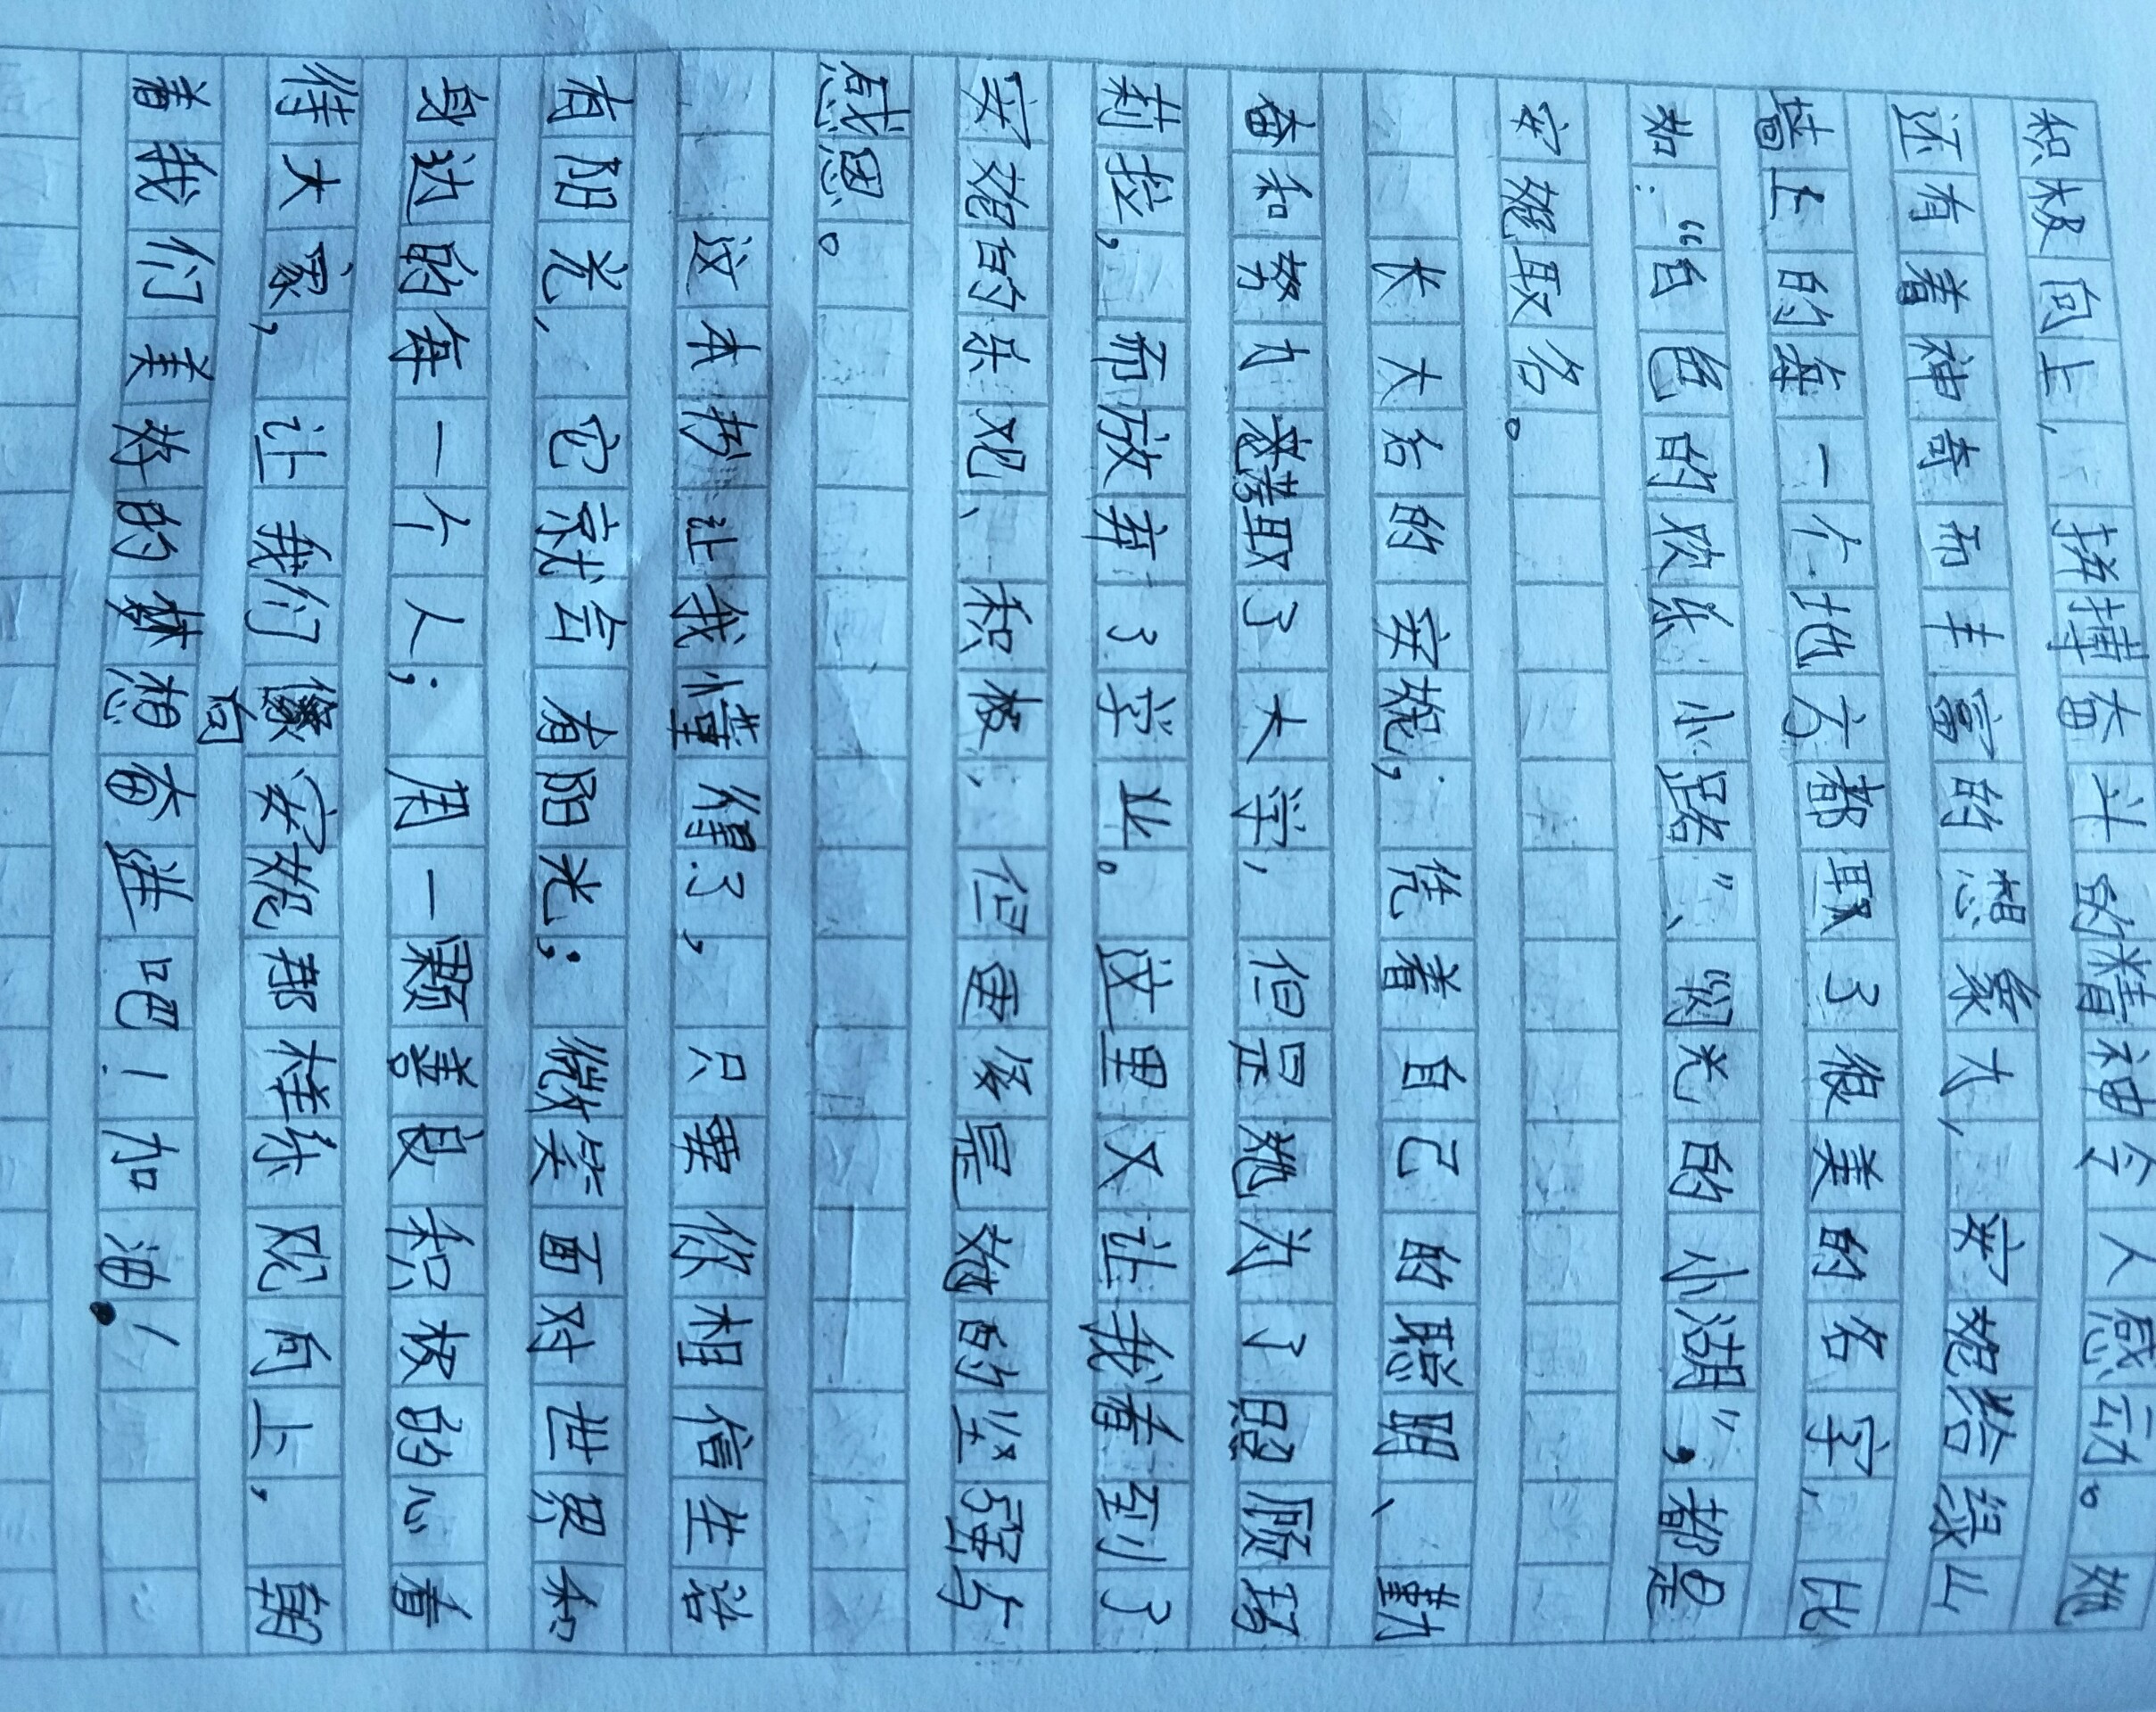 积极向上,拼搏奋斗的精神令人感动。她
还有着神奇而丰富的想象力,安妮给绿山
墙上的每一个地方都取了很美的名字,比
如:“白色的欢乐小路”、“闪光的小湖”,都是
安妮取名。
长大后的安妮,凭着自己的聪明、勤
奋和努力考取了大学,但是她为了照顾玛
莉拉,而放弃了学业。这里又让我看到了
安妮的乐观、积极,但更多是她的坚强与
感恩。
这本书让我懂得了,只要你相信生活
有阳光,它就会有阳光;微笑面对世界和
身边的每一个人;用一颗善良积极的心看
待大家,让我们向安妮那样乐观向上,朝
着我们美好的梦想奋进吧!加油!